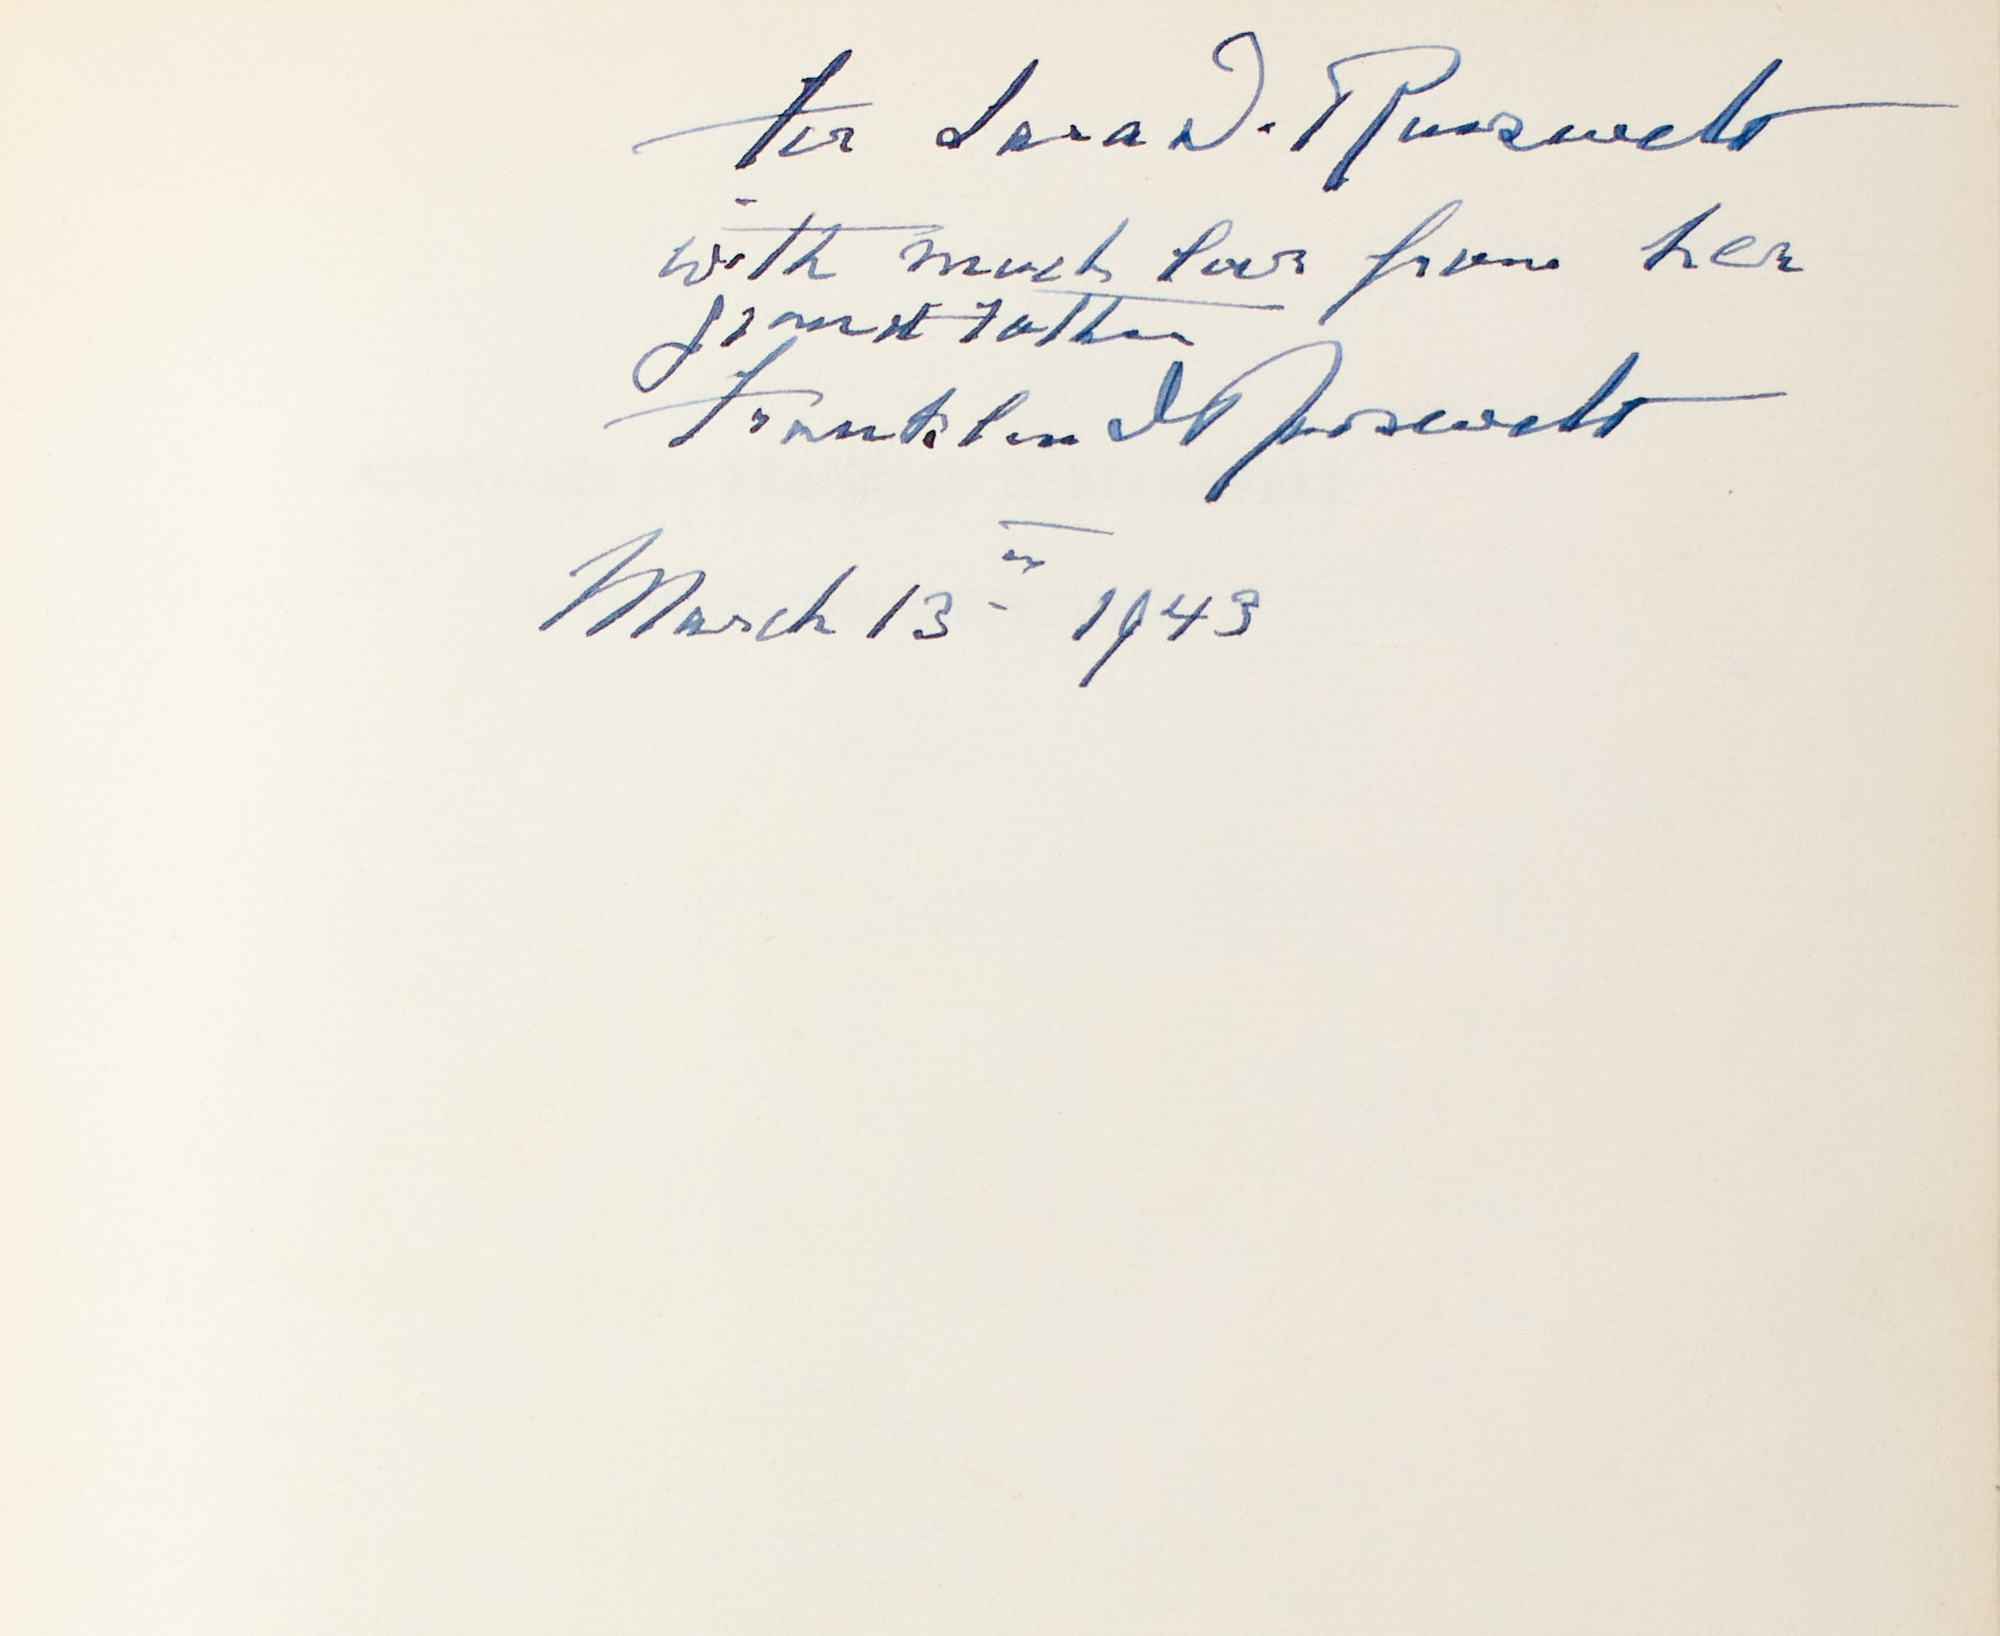 For Sara D. Roosevelt
with much love from her
grandfather
Franklin D Roosevelt
March 13th 1943